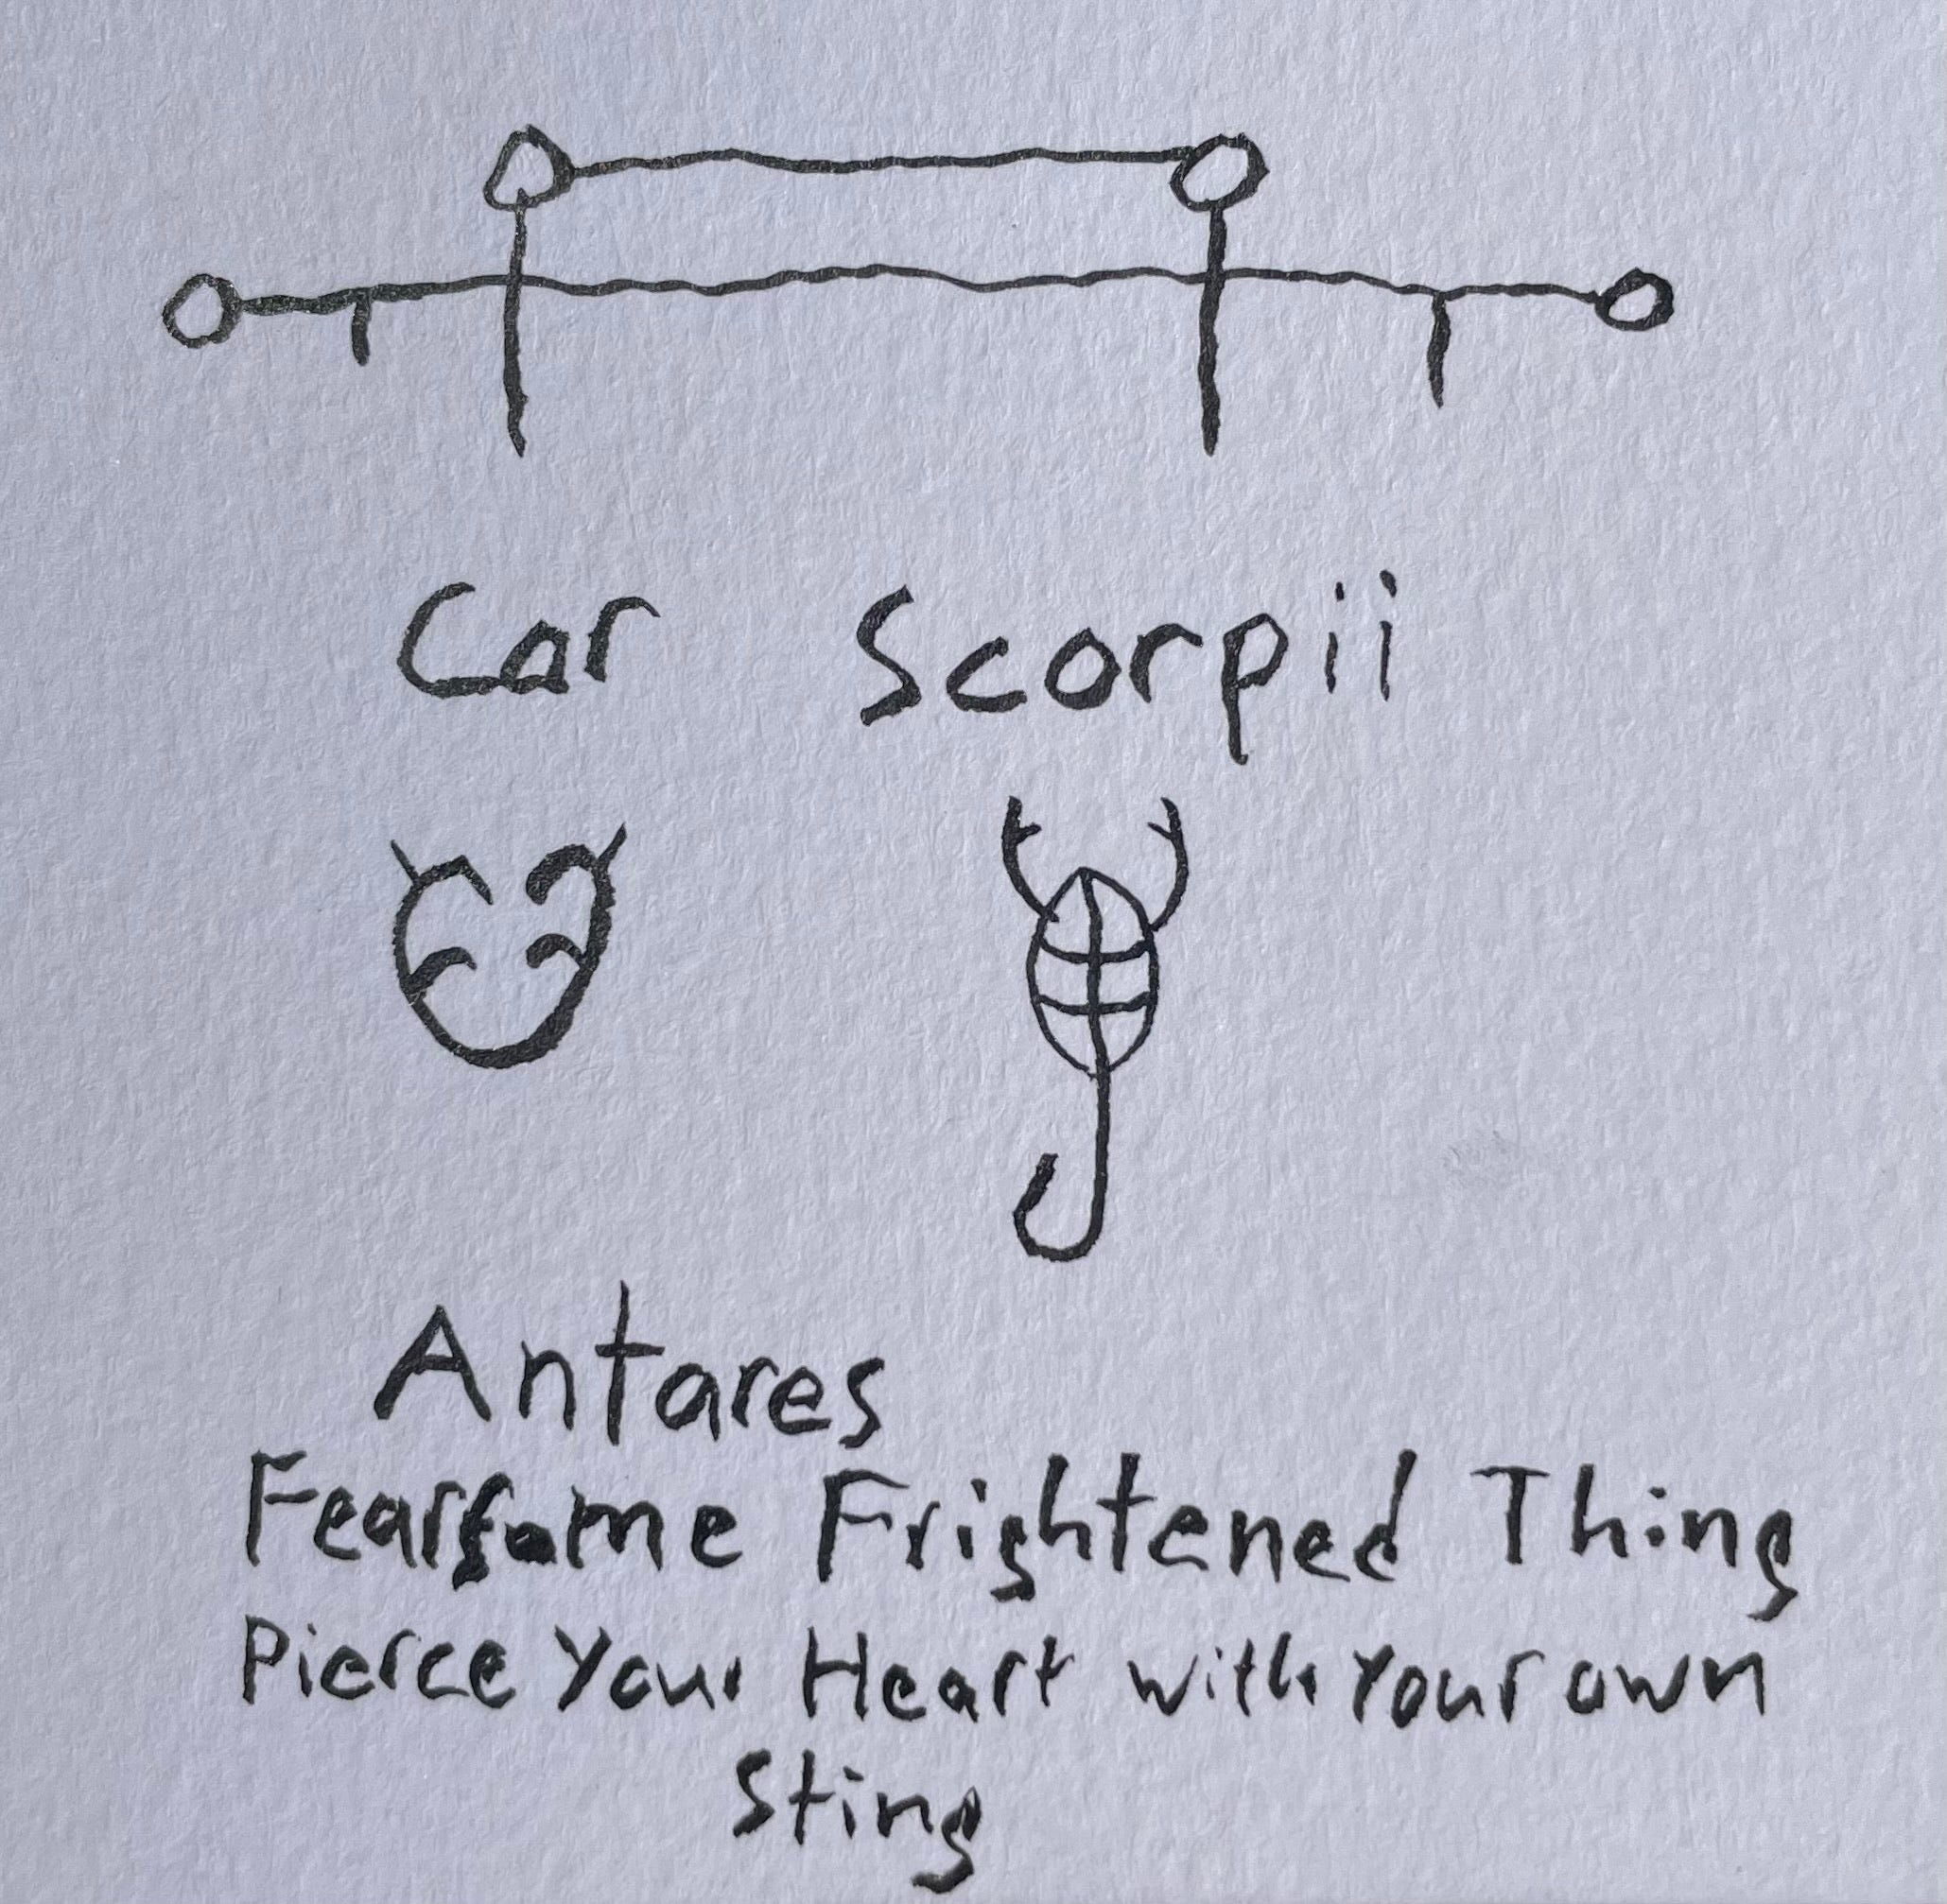 Car Scorpii
Antares
Fearsome Frightened Thing
Pierce Your Heart with Your own
Sting